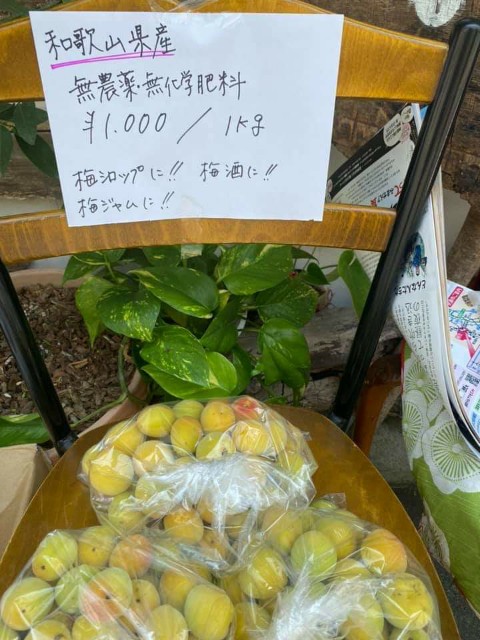 和歌山県産
無農薬・無化学肥料
¥1.000 / 1kg
梅シロップに!! 梅酒に!!
梅ジャムに!!